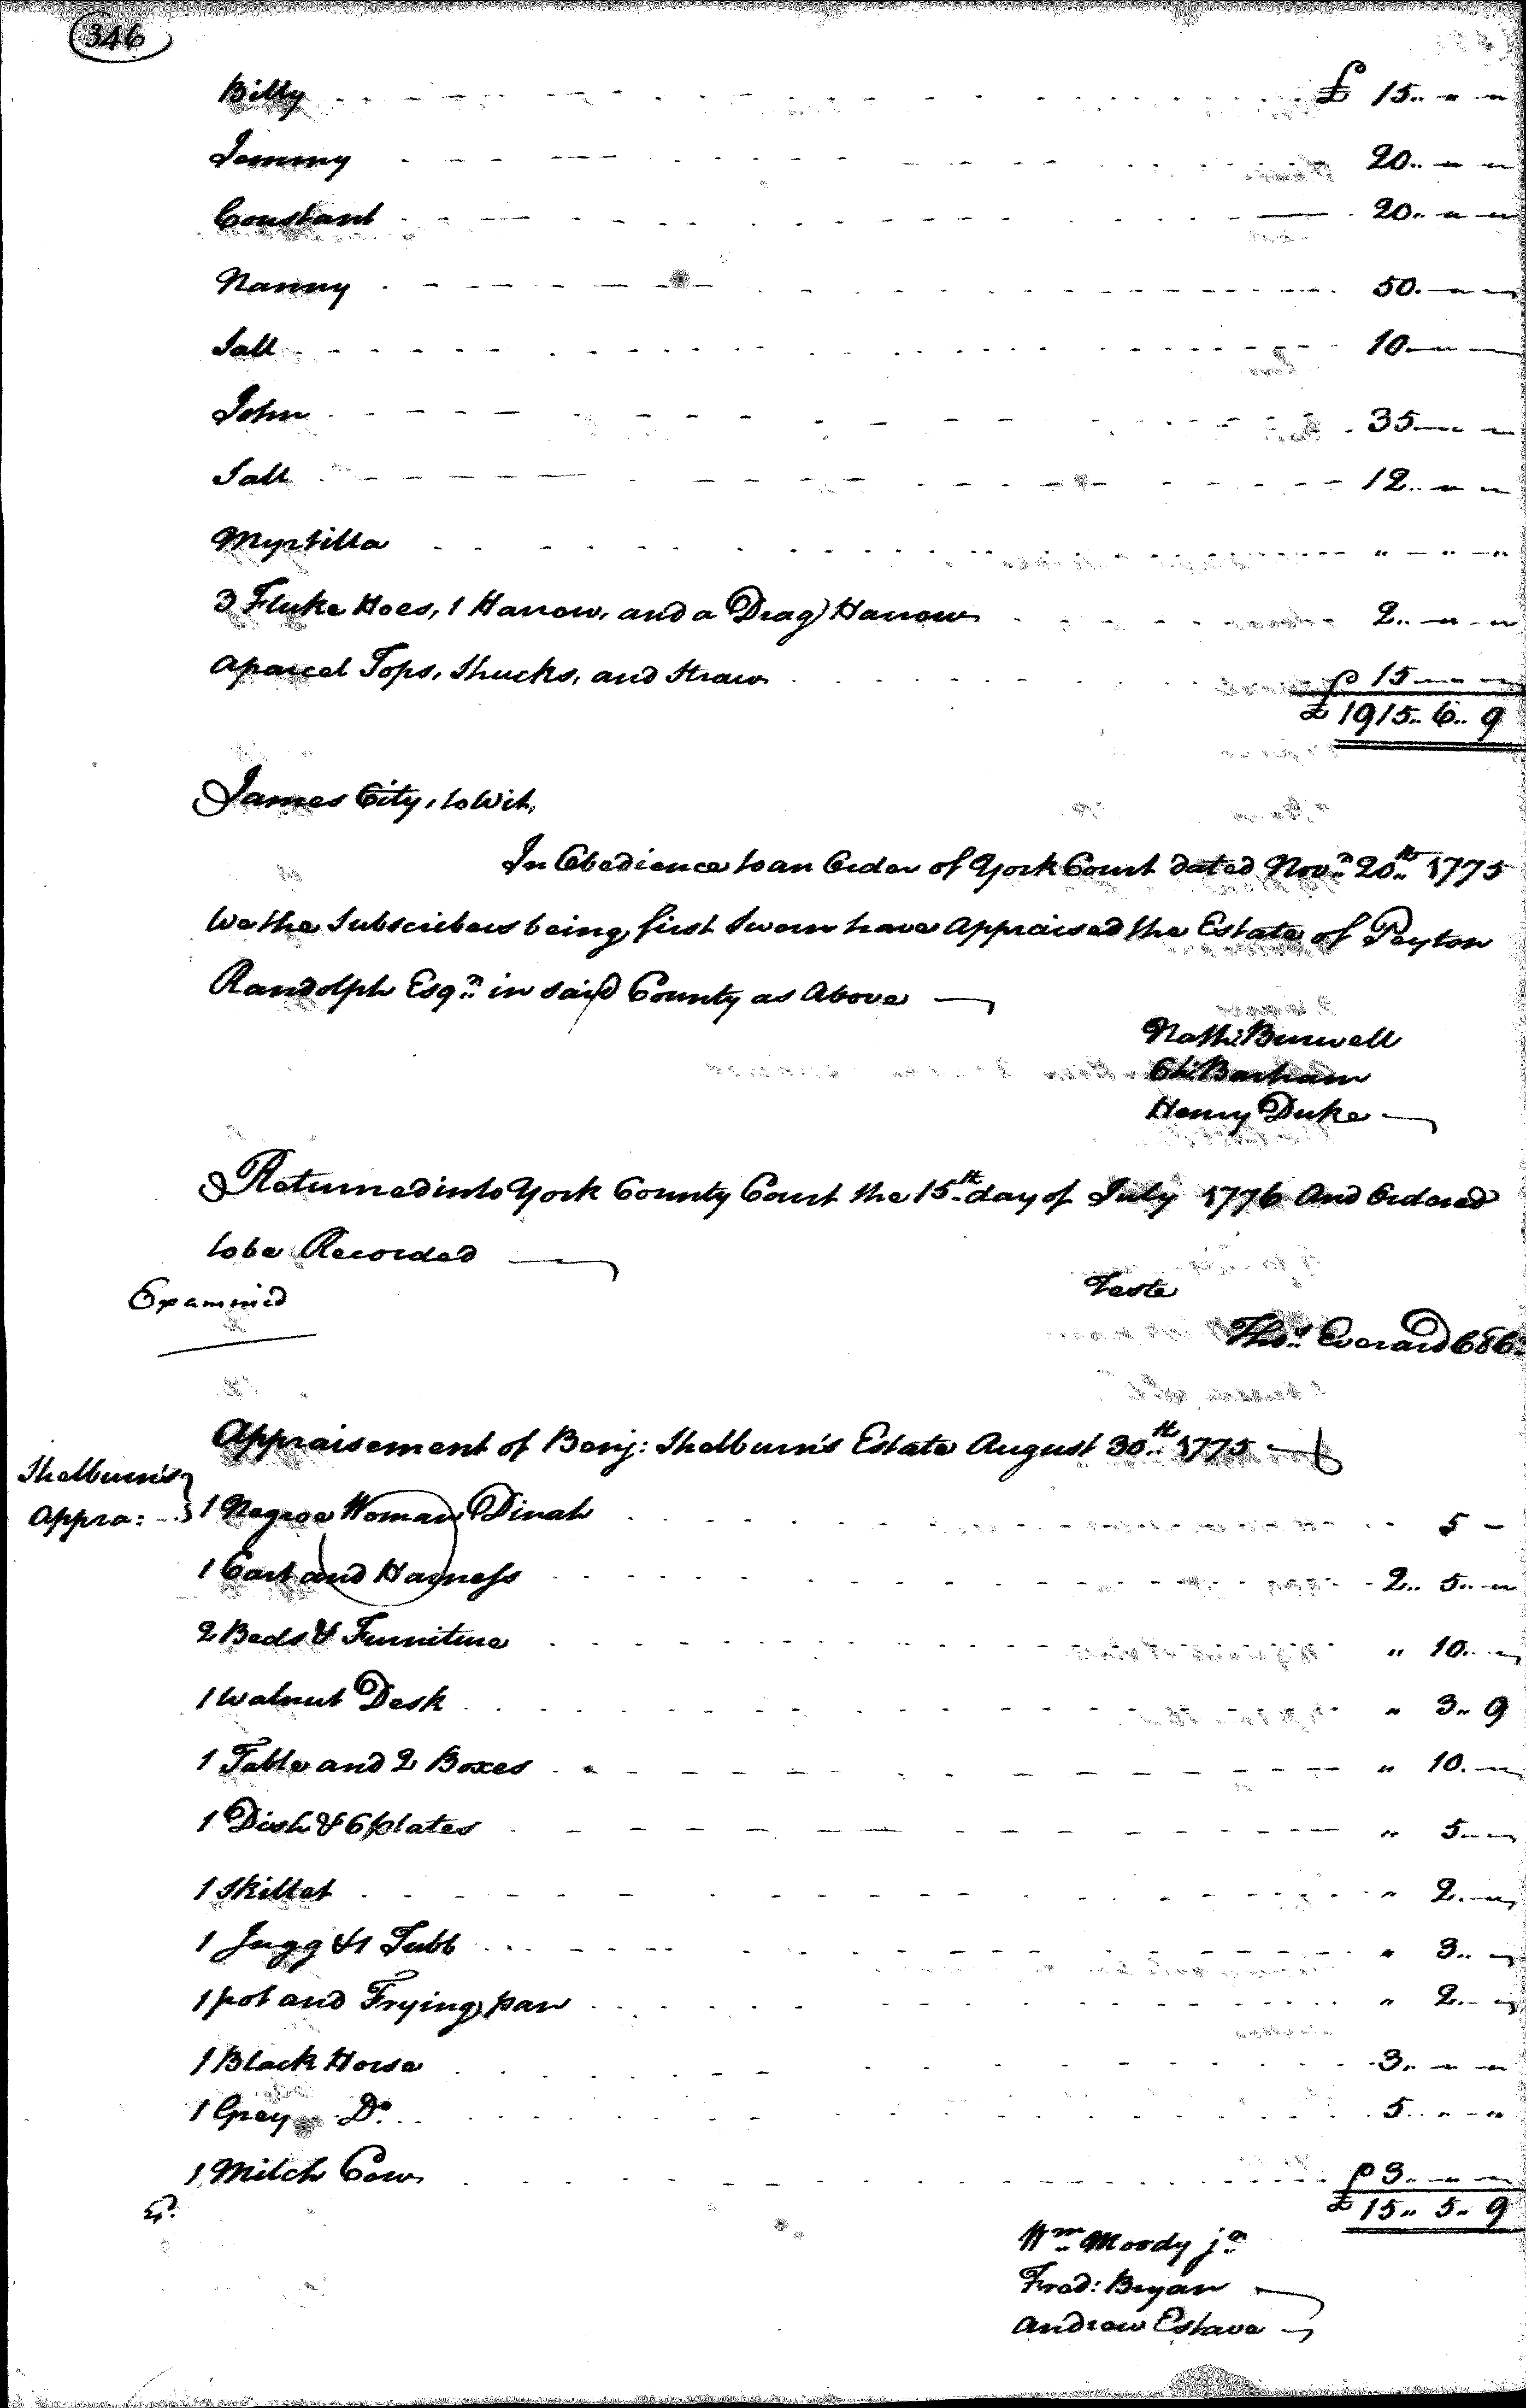 346
Billy £ 15.. " "
Jemmy 20.. " "
Constant 20.. " "
Nanny 50. " "
Sall 10 " "
John 35 " "
Sall 12.. " "
Myrtilla " " "
3 Fluke Hoes, 1 Harrow, and a Drag Harrow 2.. " "
a parcel Tops, Shucks, and Straw 15 " "
£ 1915.. 6.. 9
James City, to Wit,
In Obedience to an Order of York Court dated Novr. 20th. 1775
We the Subscribers being first Sworn have appraised the Estate of Peyton
Randolph Esqr. in said County as Above
Nathl: Burwell
Ch: Barham
Henry Duke
Returned into York County Court the 15th. day of July 1776 And Ordered
to be Recorded
Examined
Teste
Thos. Everard
Appraisement of Benj: Shelburn's Estate August 30th. 1775
Shelburn's
Appra:
1 Negroe Woman Dinah 5 -
1 Cart and Harness 2.. 5.. "
2 Beds & Furniture " 10.. "
1 Walnut Desk " 3.. 9
1 Table and 2 Boxes " 10. "
1 Dish & 6 plates " 5 "
1 Skillet " 2. "
1 Jugg & 1 Tubb " 3.. "
1 pot and Frying pan " 2.. "
1 Black Horse 3.. " "
1 Grey Do. 5.. " "
1 Milch Cow 3.. " "
£ 15.. 5.. 9
Wm. Moody jr.
Fred: Bryan
Andrew Estave